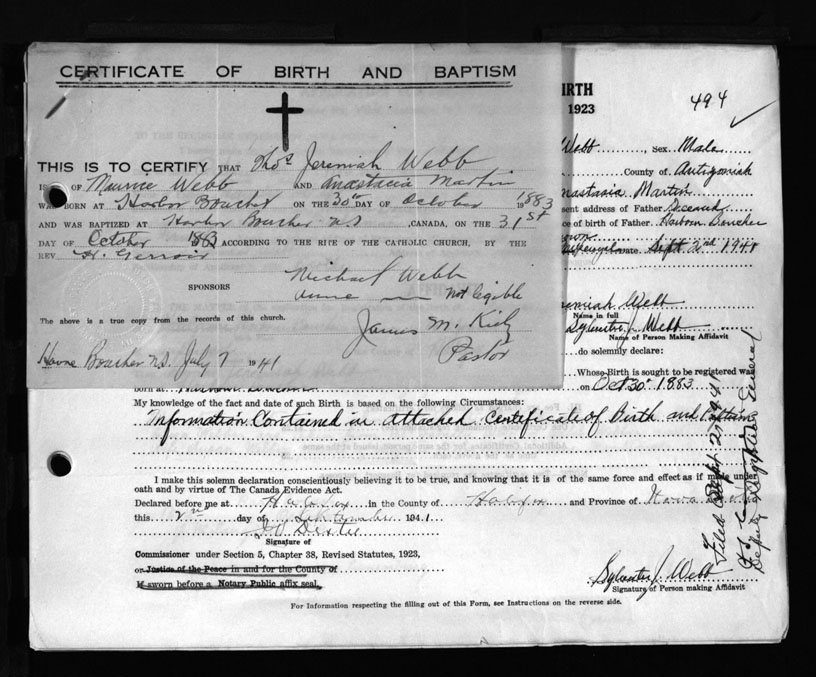 CERTIFICATE OF BIRTH AND BAPTISM
THIS IS TO CERTIFY THAT Thos Jeremiah Webb
IS OF Maurice Webb AND Anastacia Martin
WAS BORN AT Harbor Boucher ON THE 30th DAY OF October 1883
AND WAS BAPTIZED AT Harbor Boucher NS ,CANADA, ON THE 31st
DAY OF October 1883 ACCORDING TO THE RITE OF THE CATHOLIC CHURCH, BY THE
REV. H. Gerroir
SPONSORS Michael Webb
Anne — not legible
The above is a true copy from the records of this church.
James M. Kiely
Pastor
Boucher NS July 7 1941
BIRTH
1923
494
Webb , Sex Male
County of Antigonish
Anastasia Martin
sent address of Father Deceased
ce of birth of Father Harbour Boucher
Date Sept 2nd 1941
Jeremiah Webb
Name in full
Sylvester J. Webb
Name of Person Making Affidavit
do solemnly declare:
Whose Birth is sought to be registered was
born at Harbour Boucher on Oct 30th 1883
My knowledge of the fact and date of such Birth is based on the following Circumstances:
Information Contained in attached Certificate of Birth and Baptism
I make this solemn declaration conscientiously believing it to be true, and knowing that it is of the same force and effect as if made under
oath and by virtue of The Canada Evidence Act.
Declared before me at Halifax in the County of Halifax and Province of Nova Scotia
this 2nd day of September 1941
Signature of
Commissioner under Section 5, Chapter 38, Revised Statutes, 1923,
or Justice of the Peace in and for the County of
If sworn before a Notary Public affix seal.
Sylvester J. Webb
Signature of Person making Affidavit
For Information respecting the filling out of this Form, see Instructions on the reverse side.
Filed Sept 2, 1941
Deputy Registrar General